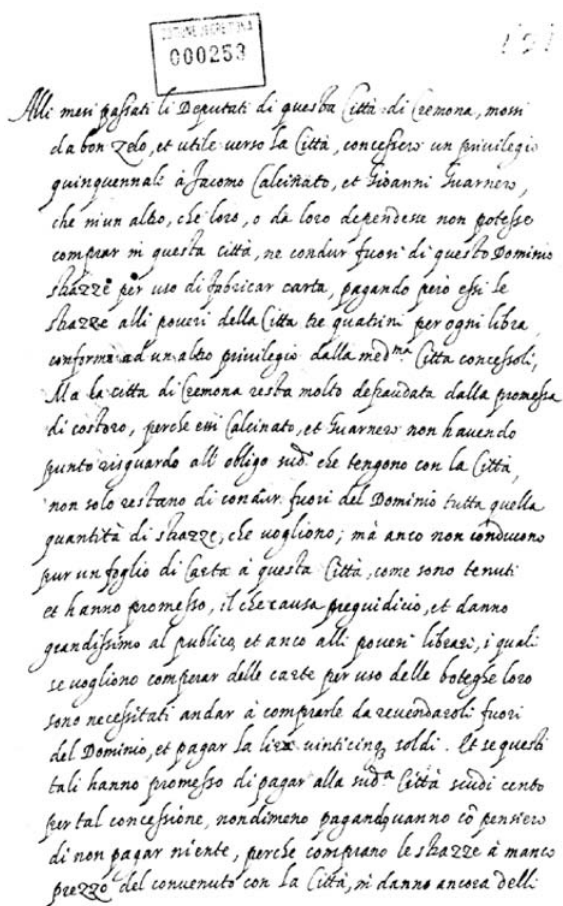 000253
Alli mesi passati li Deputati di questa Città di Cremona, mossi
da bon zelo, et utile verso la Città, concessero un privilegio
quinquennale à Jacomo Calcinato, et Gioanni Guarnero,
che niun altro, che loro, o da loro dependese non potesse
comprar in questa città, ne condur fuori di questo Dominio
strazze per uso di fabricar carta, pagando però essi le
strazze alli poveri della Citta tre quatrini per ogni libra
conforme ad un altro privilegio dalla med.ma Citta concessoli,
Ma la città di Cremona resta molto defraudata dalla promessa
di costoro, perche essi Calcinato, et Guarnero non havendo
punto risguardo all' obligo sud.º che tengono con la Città,
non solo restano di condur fuori del Dominio tutta quella
quantità di strazze, che vogliono; mà anco non conducono
pur un foglio di Carta à questa Città, come sono tenuti
et hanno promesso, il che causa pregiudicio, et danno
grandissimo al publico, et anco alli poveri librari, i quali
se vogliono comperar delle carte per uso delle boteghe loro
sono necessitati andar à comprarle da revendaroli fuori
del Dominio, et pagar la lira vinticinq, soldi. Et se questi
tali hanno promesso di pagar alla sud.a Città scudi cento
per tal concessione, nondimeno pagando vanno cō pensiero
di non pagar niente, perche comprano le strazze à manco
prezzo del convenuto con la Città, ni danno ancora delli